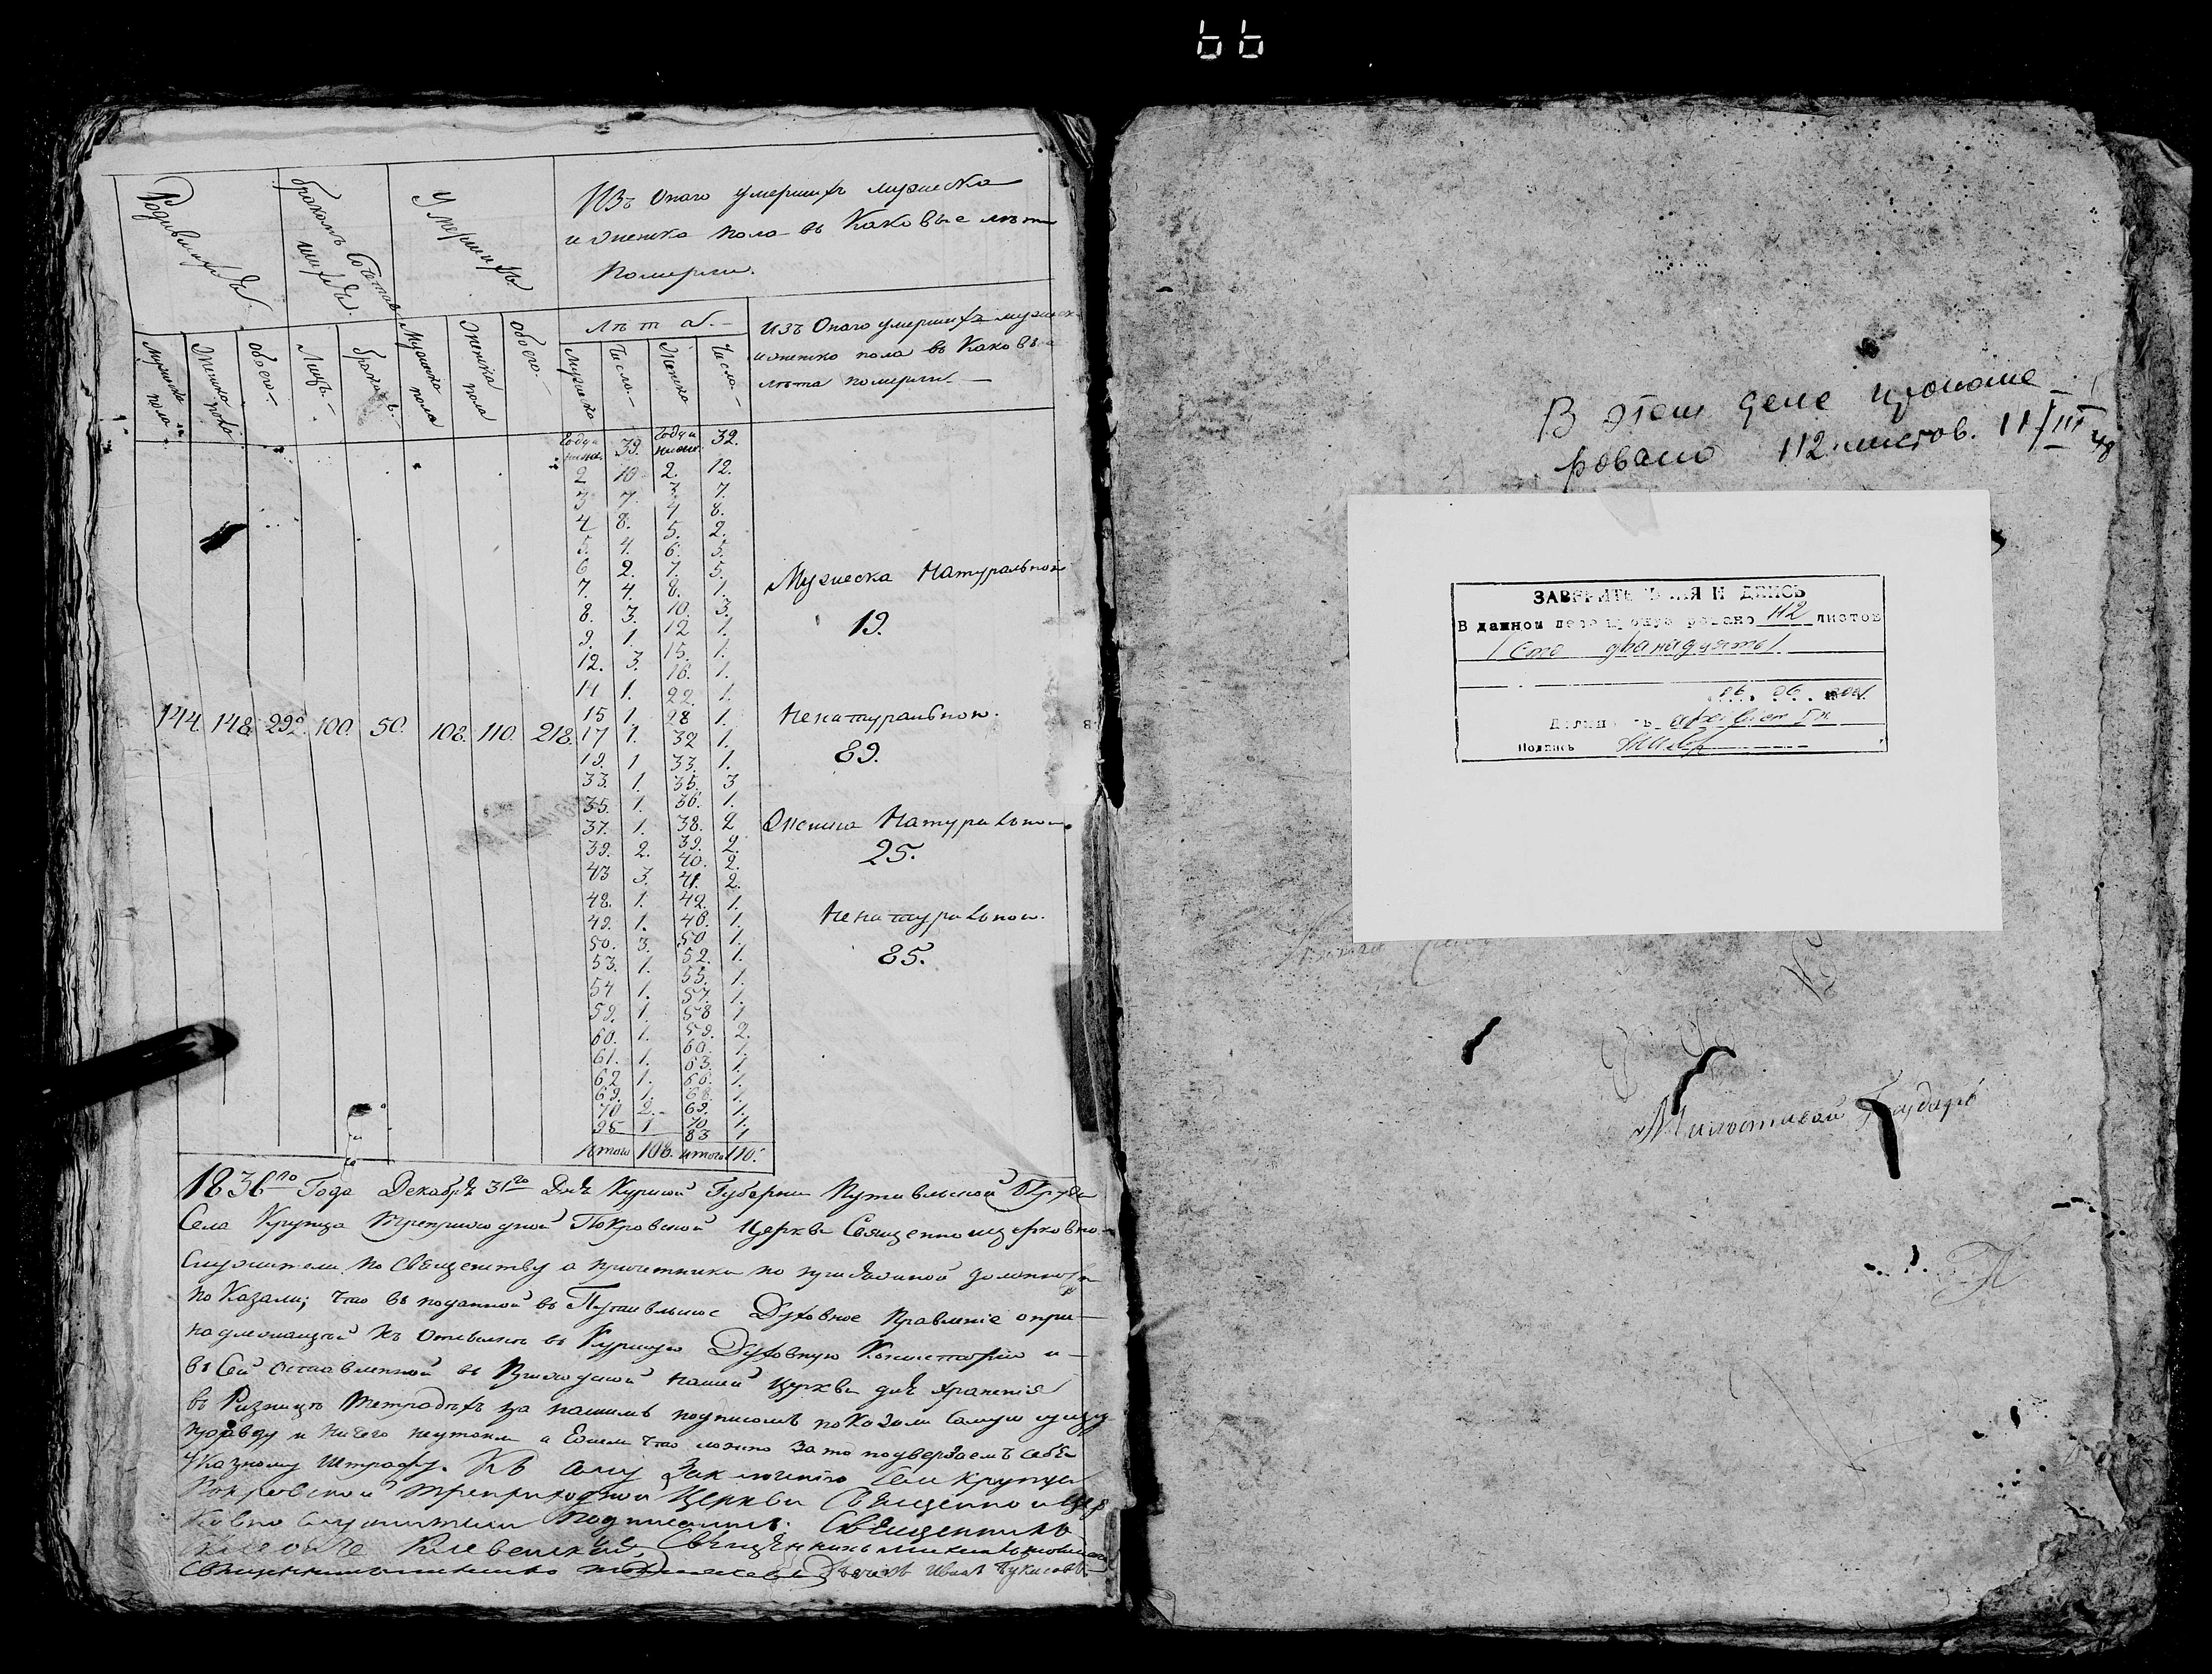 Родившихся
бракомъ Сочетав
шихся
Умершихъ
Изъ Онаго умершихъ мужеска
и женска пола въ Каковые лета
Померли.
мужеска пола
Женска пола
обоего.
Лицъ.
браковъ.
Мужеска пола
Женска пола
обоего.
Летаб.
Мужеска
Число
Женска
Число
изъ Онаго умершихъ мужеск
и женско пола въ Каковые
лета померли.
Года и ниже. 39. Года и ниже. 32.
2 10 2. 12.
3 7. 3 7.
4 8. 4 8.
5. 4. 5. 2.
6 2. 6. 5.
7. 4. 7. 5.
8. 3. 8. 1.
9. 1. 10. 3.
12. 3. 12 1.
14 1. 15. 1.
15 1. 16. 1.
17 1. 22. 1.
19. 1 28 1.
33. 1. 32 1.
35. 1. 33. 1.
37. 1. 35. 3
39. 2. 36. 1.
43 3. 38. 2
48. 1. 39. 2.
49. 1. 40. 2.
50. 3. 41. 2.
53. 1. 42. 1.
54 1. 46. 1.
59. 1. 50 1.
60. 1. 52. 1.
61. 1. 55. 1.
62 1. 57. 1.
69. 1. 58 1
70 2. 59. 2.
95 1 60. 1.
63. 1.
66. 1.
68. 1.
69. 1.
70. 1.
83 1
Итого 108. итого 110.
144. 148. 292. 100. 50. 108. 110. 218.
Мужеска Натуральной
19.
Ненатуральной.
89.
Женска Натуральной
25.
Ненатуральной.
85.
1836го Года Декабря 31го Дня Курской Губернии Путивльской Округи
Села Крупца трехприходной Покровской Церкви Священноицерковно-
Служители по Священству а причетники по присяжной должности
показали; что въ поданной въ Путивльское Духовное Правление о при-
надлежащей къ Отсылке въ Курскую Духовную Консисторию и
въ Сей оставленной въ Приходской нашей церкви для хранения
въ Ризнице тетрадехъ за нашимъ подписомъ показали Самую сущую
правду и ничего неутаили а Ежели что ложно Зато подвергаемъ Себя
Указному Штрафу. Къ сему Заключению Села Крупца
Покровской трехприходной Церкви Священно и Цер
ковно служители подписались: Священникъ
Священникъ
Иванъ
66
В этом деле пронуме-
ровано 112 листов. 11/III 48
ЗАВЕРИТЕЛЬНАЯ НАДПИСЬ
В данном деле пронумеровано 112 листов
/ Сто двенадцать /
06. 06. 2001.
Должность архивист I к
Подпись
Милостивой Государь